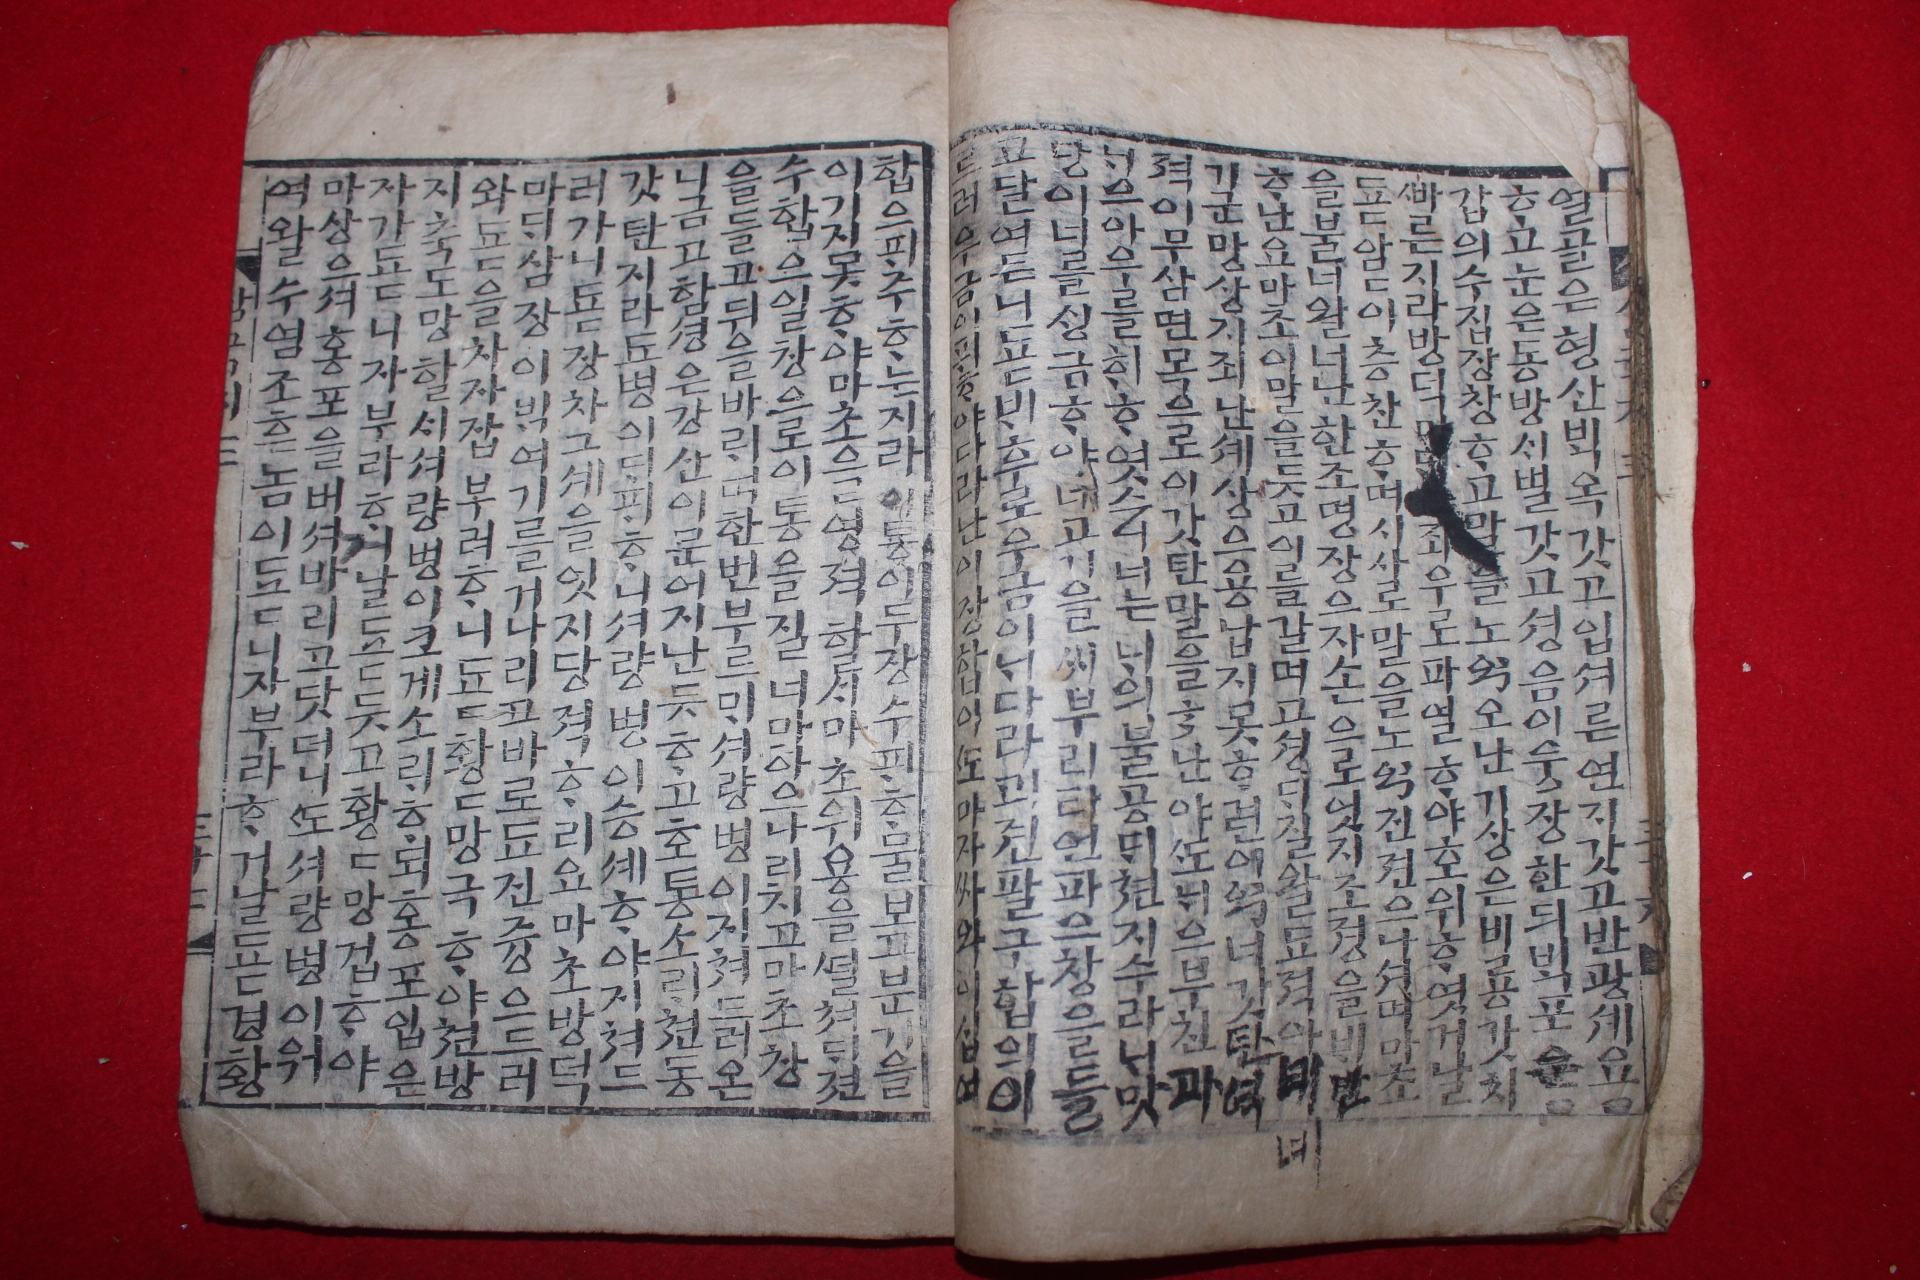 열골은형산ᄇᆡᆨ옥갓고입셔른연지갓고반광셰용
ᄒᆞ고눈은동방ᄉᆡ별갓고셩음이웅장한듸ᄇᆡᆨ포운
갑의수집장창ᄒᆞ고말을노와오난긔상은비룡갓치
ᄲᅡ른지라방덕 좌우로파열ᄒᆞ야호위ᄒᆞ엿거날
됴됴암암이층찬ᄒᆞ며시살도말을노와진젼으나셔며마초
을불너왈너난한조명장으자손으로엇지조졍을ᄇᆡ반
ᄒᆞ난요마초이말을듯고이를갈며고셩ᄃᆡ질왈됴젹아
긔군망상지죄난셰상으용납지못ᄒᆞ련이와너갓탄역
젹이무삼면목으로이갓탄말을ᄒᆞ난야ᄯᅩ늬으부친과
늬으아우를ᄒᆡᄒᆞ엿스니너는늬의불공ᄃᆡ쳔지수라늬맛
당이너를싱금ᄒᆞ야네고기을ᄶᅵ부리란언파으창을들
고달여드니됴됸비후로우금이ᄂᆡ다라ᄆᆡ진팔구합의이
르러우금이ᄑᆡᄒᆞ야다라난이장합이ᄯᅩ마자싸와이십여
합으ᄑᆡ주ᄒᆞ는지라이통이두장수ᄑᆡᄒᆞ물보고분긔을
이기지못ᄒᆞ야마초을영젹할ᄉᆡ마초위용을ᄯᅥᆯ쳐되젼
수합으일창으로이통을질너마아으나리치고마초창
을들고뒤을바ᄅᆡ며한번부르ᄆᆡ셔량병이짓쳐드러온
니금고함셩은강산이문어지난듯ᄒᆞ고호통소ᄅᆡ쳔동
갓탄지라됴병이ᄃᆡᄑᆡᄒᆞ니셔량병이승셰ᄒᆞ야지쳐드
러가니됴됸장차그셰을엇지당젹ᄒᆞ리요마초방덕
마ᄃᆡ삼장이ᄇᆡᆨ여기를거나리고바로됴진즁으드러
와됴됴을차자잡부려ᄒᆞ니됴됴황망국ᄒᆞ야쳔방
지축도망할ᄉᆡ셔량병이크게소ᄅᆡᄒᆞ되홍포입은
자가됴됴니자부라ᄒᆞ거날됴됴듯고황망겁ᄒᆞ야
마상으셔홍포을버셔바리고닷더니ᄯᅩ셔량병이워
여왈수염조흔놈이됴됴니자부라ᄒᆞ거날됴됴경황
삼국지三